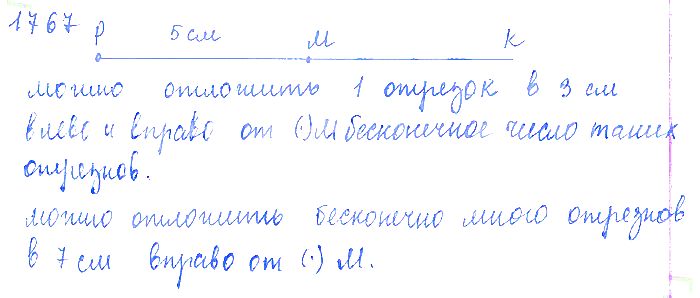 1767 P 5см M K
можно отложить 1 отрезок в 3 см
влево и вправо от (·)М бесконечное число таких
отрезков.
можно отложить бесконечно много отрезков
в 7 см вправо от (·) М.